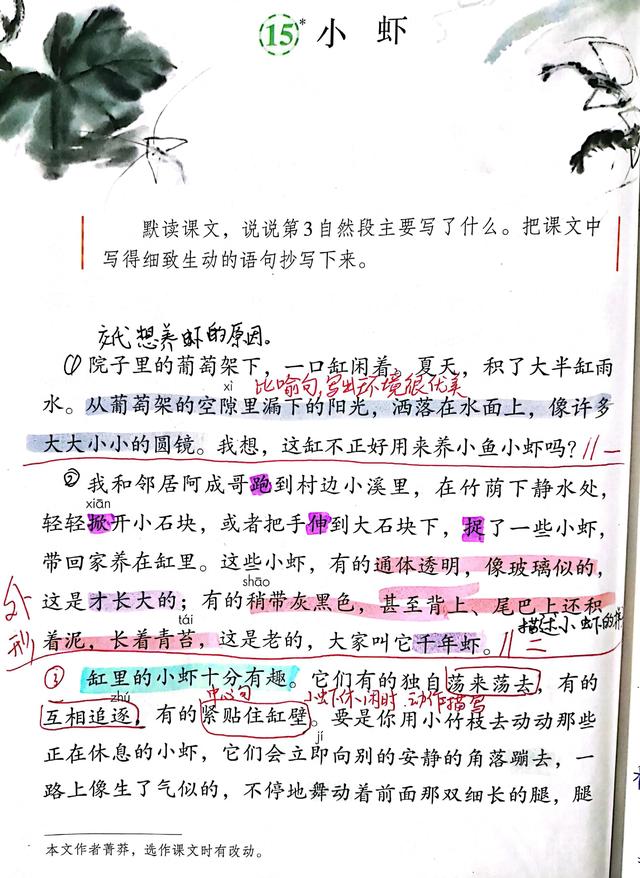 15* 小 虾
默读课文，说说第3自然段主要写了什么。把课文中
写得细致生动的语句抄写下来。
交代想养虾的原因。
① 院子里的葡萄架下，一口缸闲着。夏天，积了大半缸雨
xì
比喻句，写出环境很优美
水。从葡萄架的空隙里漏下的阳光，洒落在水面上，像许多
大大小小的圆镜。我想，这缸不正好用来养小鱼小虾吗？//一
② 我和邻居阿成哥跑到村边小溪里，在竹荫下静水处，
xiān
轻轻掀开小石块，或者把手伸到大石块下，捉了一些小虾，
带回家养在缸里。这些小虾，有的通体透明，像玻璃似的，
shāo
这是才长大的；有的稍带灰黑色，甚至背上、尾巴上还积
外形
tái
描述小虾的
着泥，长着青苔，这是老的，大家叫它千年虾。//二
③ 缸里的小虾十分有趣。它们有的独自荡来荡去，有的
zhú
中心句
小虾休闲时 动作描写
互相追逐，有的紧贴住缸壁。要是你用小竹枝去动动那些
jí
正在休息的小虾，它们会立即向别的安静的角落蹦去，一
路上像生了气似的，不停地舞动着前面那双细长的腿，腿
本文作者菁莽，选作课文时有改动。